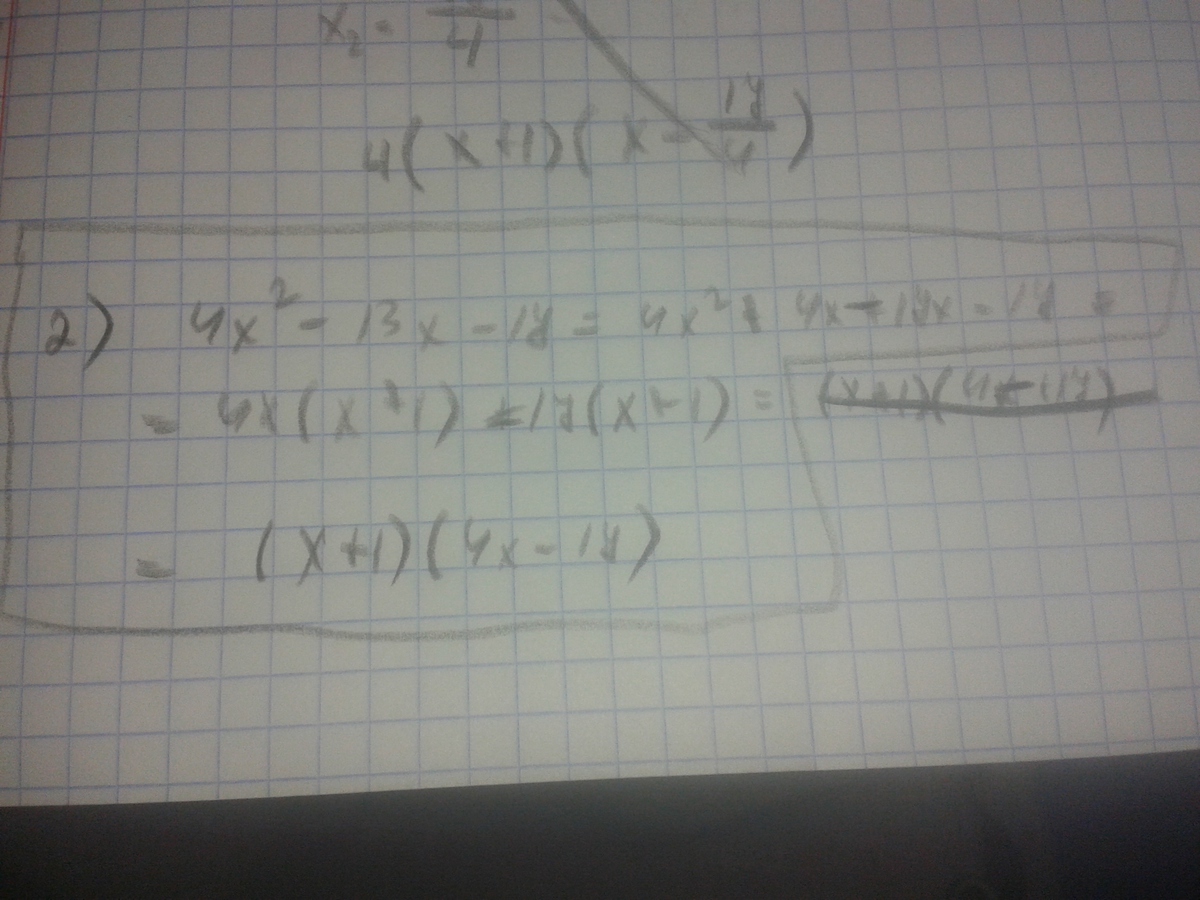 x₂ = /4
4(x+1)(x-17/4)
2) 4x² - 13x - 17 = 4x² + 4x - 17x - 17 =
= 4x(x+1) - 17(x+1) =
= (x+1)(4x-17)